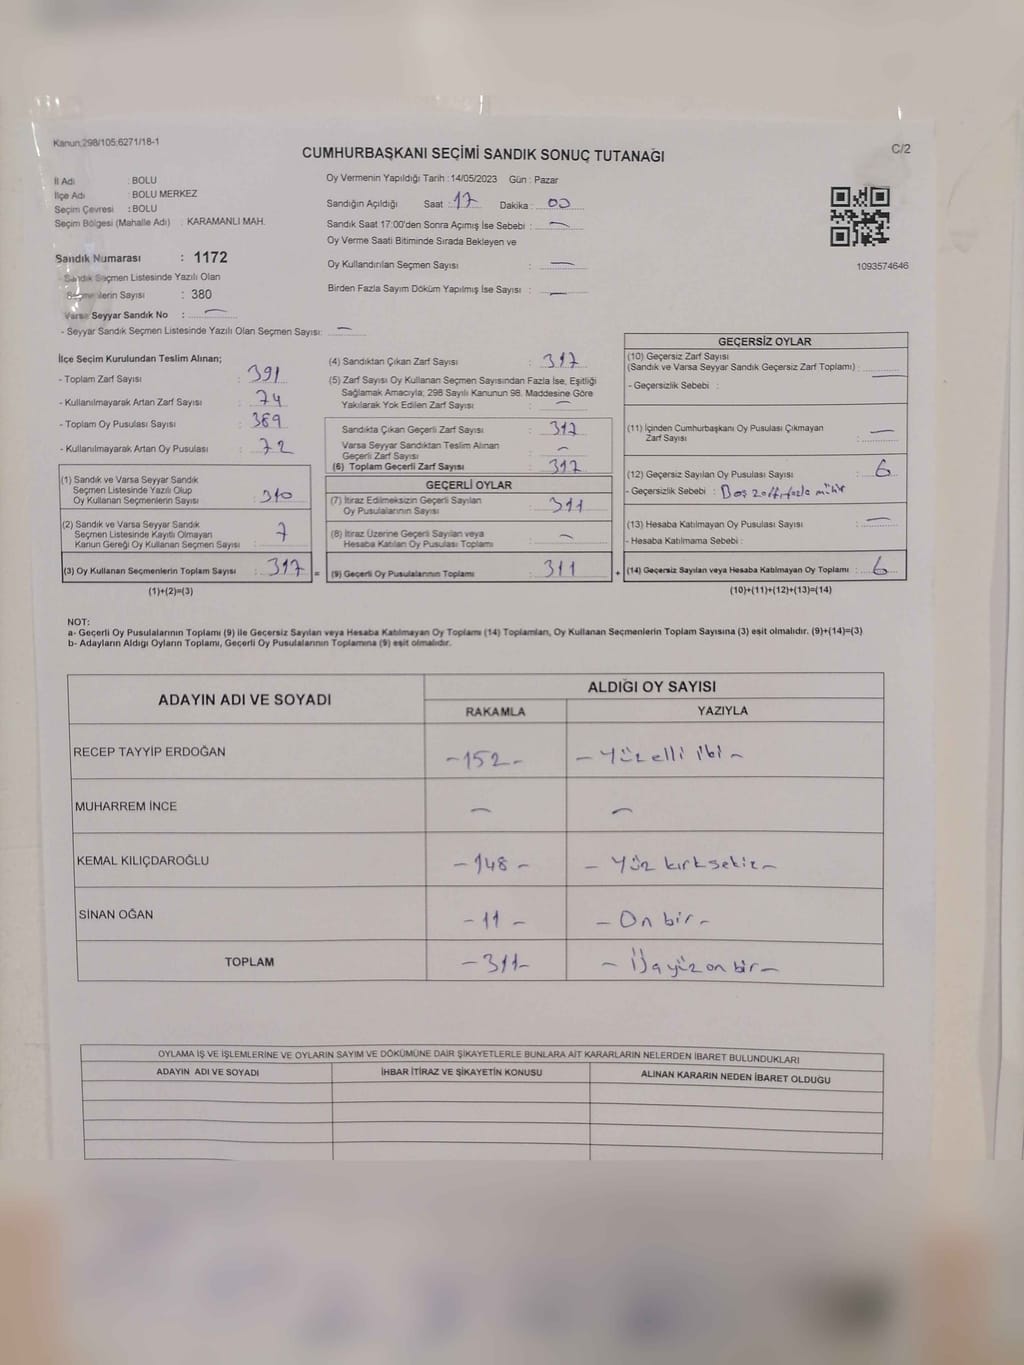 Kanun:298/105;6271/18-1
C/2
CUMHURBAŞKANI SEÇİMİ SANDIK SONUÇ TUTANAĞI
İl Adı : BOLU
İlçe Adı : BOLU MERKEZ
Seçim Çevresi : BOLU
Seçim Bölgesi (Mahalle Adı) : KARAMANLI MAH.
Sandık Numarası : 1172
Sandık Seçmen Listesinde Yazılı Olan
Seçmenlerin Sayısı : 380
Varsa Seyyar Sandık No : —
- Seyyar Sandık Seçmen Listesinde Yazılı Olan Seçmen Sayısı: —
Oy Vermenin Yapıldığı Tarih : 14/05/2023 Gün : Pazar
Sandığın Açıldığı Saat : 17 Dakika : 00
Sandık Saat 17:00'den Sonra Açımış İse Sebebi : —
Oy Verme Saati Bitiminde Sırada Bekleyen ve
Oy Kullandırılan Seçmen Sayısı : —
Birden Fazla Sayım Döküm Yapılmış İse Sayısı : —
1093574646
İlçe Seçim Kurulundan Teslim Alınan;
- Toplam Zarf Sayısı : 391
- Kullanılmayarak Artan Zarf Sayısı : 74
- Toplam Oy Pusulası Sayısı : 389
- Kullanılmayarak Artan Oy Pusulası : 72
(1) Sandık ve Varsa Seyyar Sandık
Seçmen Listesinde Yazılı Olup
Oy Kullanan Seçmenlerin Sayısı : 310
(2) Sandık ve Varsa Seyyar Sandık
Seçmen Listesinde Kayıtlı Olmayan
Kanun Gereği Oy Kullanan Seçmen Sayısı : 7
(3) Oy Kullanan Seçmenlerin Toplam Sayısı : 317 =
(1)+(2)=(3)
(4) Sandıktan Çıkan Zarf Sayısı : 317
(5) Zarf Sayısı Oy Kullanan Seçmen Sayısından Fazla İse, Eşitliği
Sağlamak Amacıyla, 298 Sayılı Kanunun 98. Maddesine Göre
Yakılarak Yok Edilen Zarf Sayısı : —
Sandıkta Çıkan Geçerli Zarf Sayısı : 317
Varsa Seyyar Sandıktan Teslim Alınan
Geçerli Zarf Sayısı : —
(6) Toplam Geçerli Zarf Sayısı : 317
GEÇERLİ OYLAR
(7) İtiraz Edilmeksizin Geçerli Sayılan
Oy Pusulalarının Sayısı : 311
(8) İtiraz Üzerine Geçerli Sayılan veya
Hesaba Katılan Oy Pusulası Toplamı : —
(9) Geçerli Oy Pusulalarının Toplamı : 311 +
GEÇERSİZ OYLAR
(10) Geçersiz Zarf Sayısı
(Sandık ve Varsa Seyyar Sandık Geçersiz Zarf Toplamı) : —
- Geçersizlik Sebebi :
(11) İçinden Cumhurbaşkanı Oy Pusulası Çıkmayan
Zarf Sayısı : —
(12) Geçersiz Sayılan Oy Pusulası Sayısı : 6
- Geçersizlik Sebebi : Boş zarf, fazla mühür
(13) Hesaba Katılmayan Oy Pusulası Sayısı : —
- Hesaba Katılmama Sebebi :
(14) Geçersiz Sayılan veya Hesaba Katılmayan Oy Toplamı : 6
(10)+(11)+(12)+(13)=(14)
NOT:
a- Geçerli Oy Pusulalarının Toplamı (9) ile Geçersiz Sayılan veya Hesaba Katılmayan Oy Toplamı (14) Toplamları, Oy Kullanan Seçmenlerin Toplam Sayısına (3) eşit olmalıdır. (9)+(14)=(3)
b- Adayların Aldığı Oyların Toplamı, Geçerli Oy Pusulalarının Toplamına (9) eşit olmalıdır.
ADAYIN ADI VE SOYADI
ALDIĞI OY SAYISI
RAKAMLA YAZIYLA
RECEP TAYYİP ERDOĞAN -152- - Yüzelli iki -
MUHARREM İNCE — —
KEMAL KILIÇDAROĞLU -148- - Yüz kırksekiz -
SİNAN OĞAN -11- - On bir -
TOPLAM -311- - Üçyüzonbir -
OYLAMA İŞ VE İŞLEMLERİNE VE OYLARIN SAYIM VE DÖKÜMÜNE DAİR ŞİKAYETLERLE BUNLARA AİT KARARLARIN NELERDEN İBARET BULUNDUKLARI
ADAYIN ADI VE SOYADI İHBAR İTİRAZ VE ŞİKAYETİN KONUSU ALINAN KARARIN NEDEN İBARET OLDUĞU